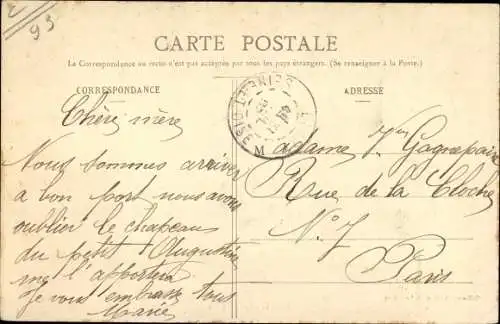 95
CARTE POSTALE
La Correspondance au recto n'est pas acceptée par tous les pays étrangers. (Se renseigner à la Poste.)
CORRESPONDANCE
Chère mère
Nous sommes arrivés
à bon port nous avons
oublier le chapeau
du petit Augustin
me l'apportera
Je vous embrasse tous
Marie
ADRESSE
Madame Vve Gagnepain
Rue de la Cloche
No 7
Paris